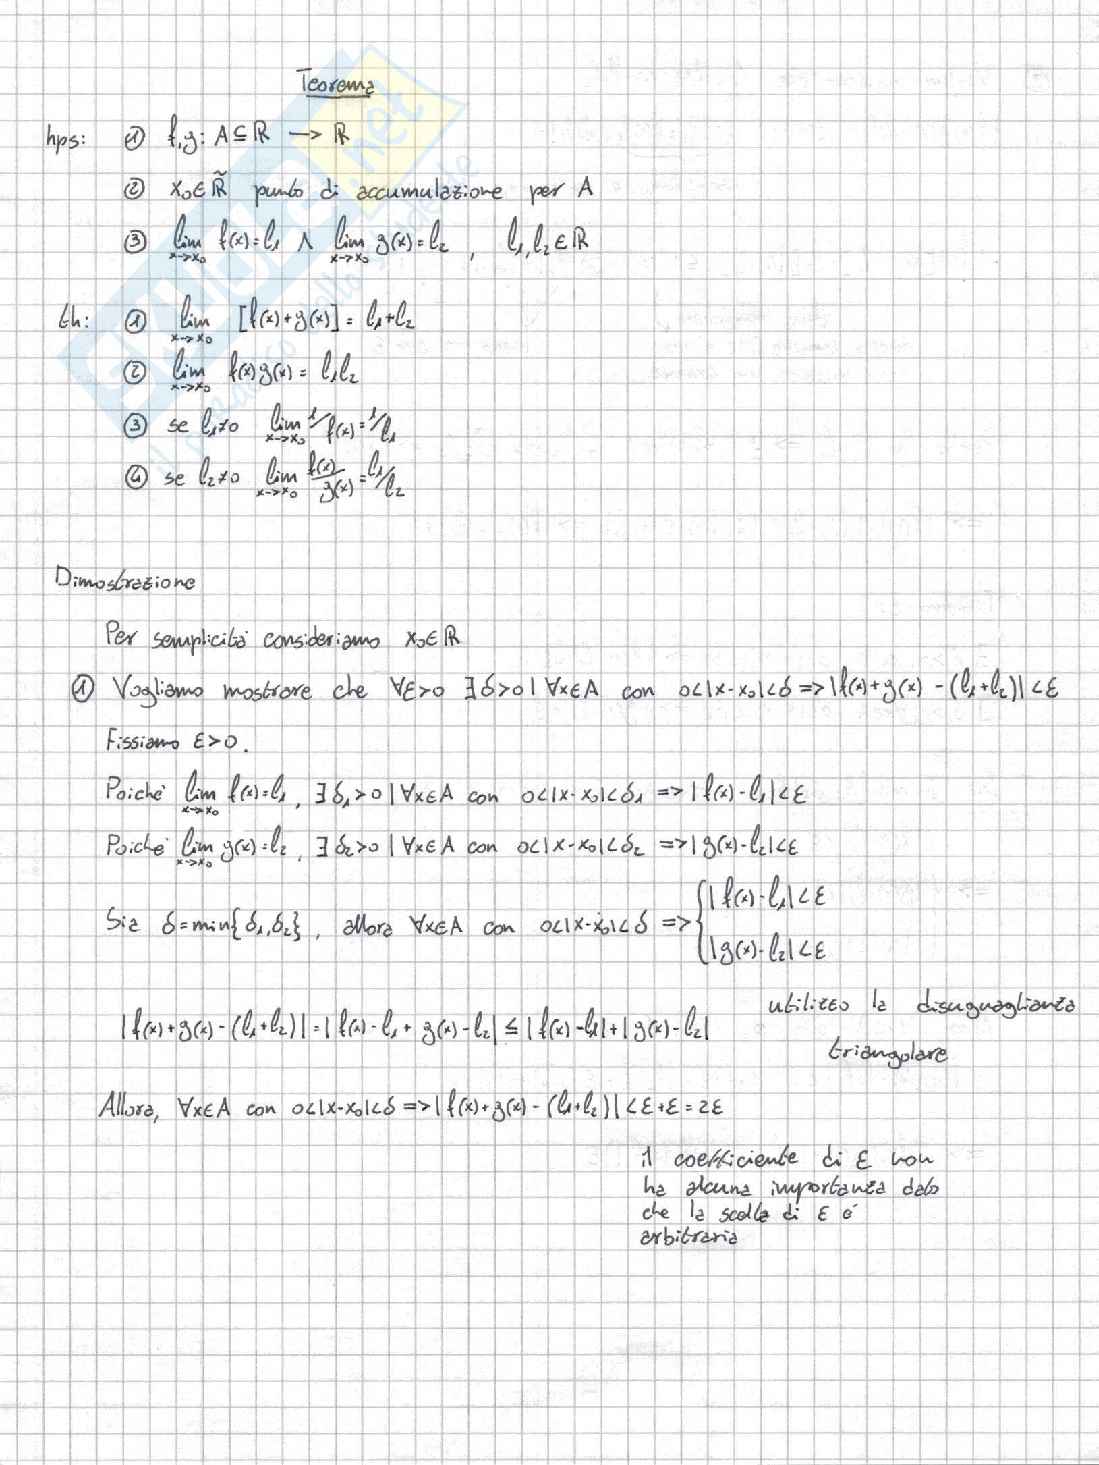 Teorema
hps: ① f,g: A ⊆ ℝ → ℝ
② x₀ ∈ ℝ̃ punto di accumulazione per A
③ lim x→x₀ f(x) = l₁ ∧ lim x→x₀ g(x) = l₂ , l₁, l₂ ∈ ℝ
th: ① lim x→x₀ [f(x)+g(x)] = l₁+l₂
② lim x→x₀ f(x)g(x) = l₁l₂
③ se l₁≠0 lim x→x₀ 1/f(x) = 1/l₁
④ se l₂≠0 lim x→x₀ f(x)/g(x) = l₁/l₂
Dimostrazione
Per semplicità consideriamo x₀ ∈ ℝ
① Vogliamo mostrare che ∀ε>0 ∃δ>0 | ∀x∈A con 0<|x-x₀|<δ => |f(x)+g(x) - (l₁+l₂)| < ε
Fissiamo ε>0.
Poiché lim x→x₀ f(x)=l₁, ∃ δ₁>0 | ∀x∈A con 0<|x-x₀|<δ₁ => |f(x)-l₁|<ε
Poiché lim x→x₀ g(x)=l₂, ∃ δ₂>0 | ∀x∈A con 0<|x-x₀|<δ₂ => |g(x)-l₂|<ε
Sia δ=min{δ₁,δ₂}, allora ∀x∈A con 0<|x-x₀|<δ => { |f(x)-l₁|<ε
|g(x)-l₂|<ε
utilizzo la disuguaglianza
|f(x)+g(x)-(l₁+l₂)| = |f(x)-l₁ + g(x)-l₂| ≤ |f(x)-l₁|+|g(x)-l₂|
triangolare
Allora, ∀x∈A con 0<|x-x₀|<δ => |f(x)+g(x) - (l₁+l₂)| < ε+ε = 2ε
il coefficiente di ε non
ha alcuna importanza dato
che la scelta di ε é
arbitraria